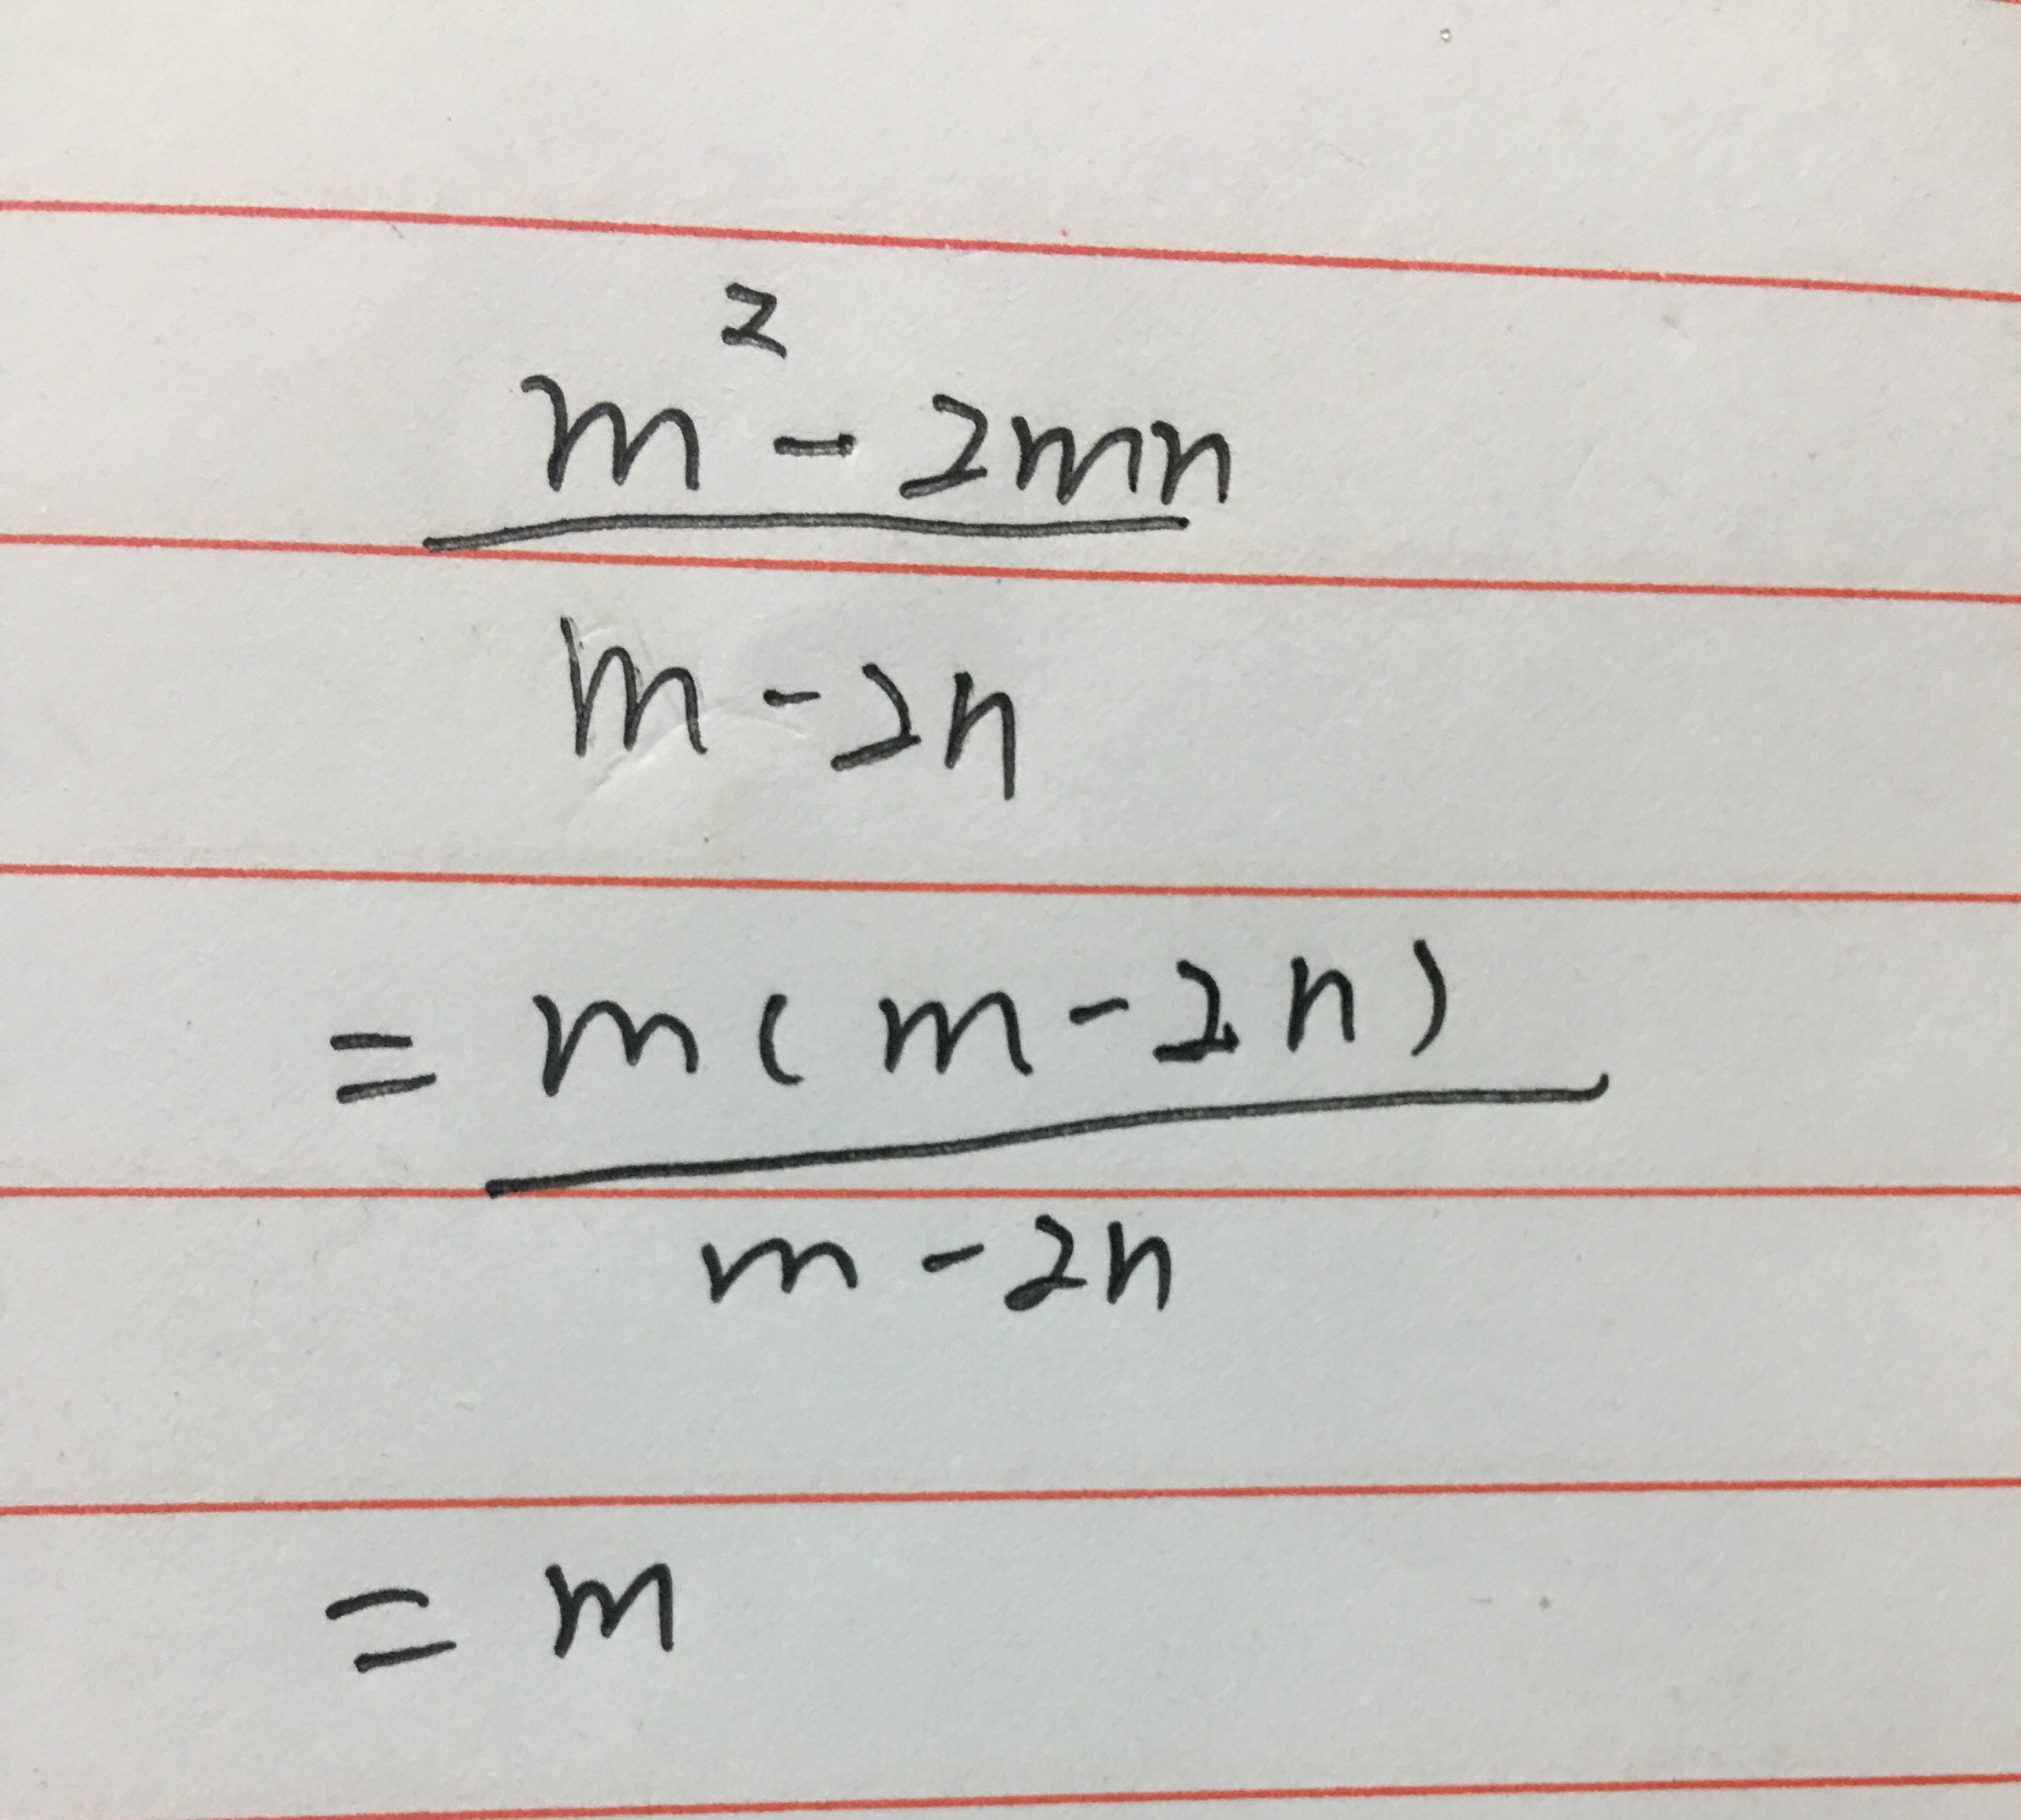 m² - 2mn
m - 2n
= m(m - 2n)
m - 2n
= m